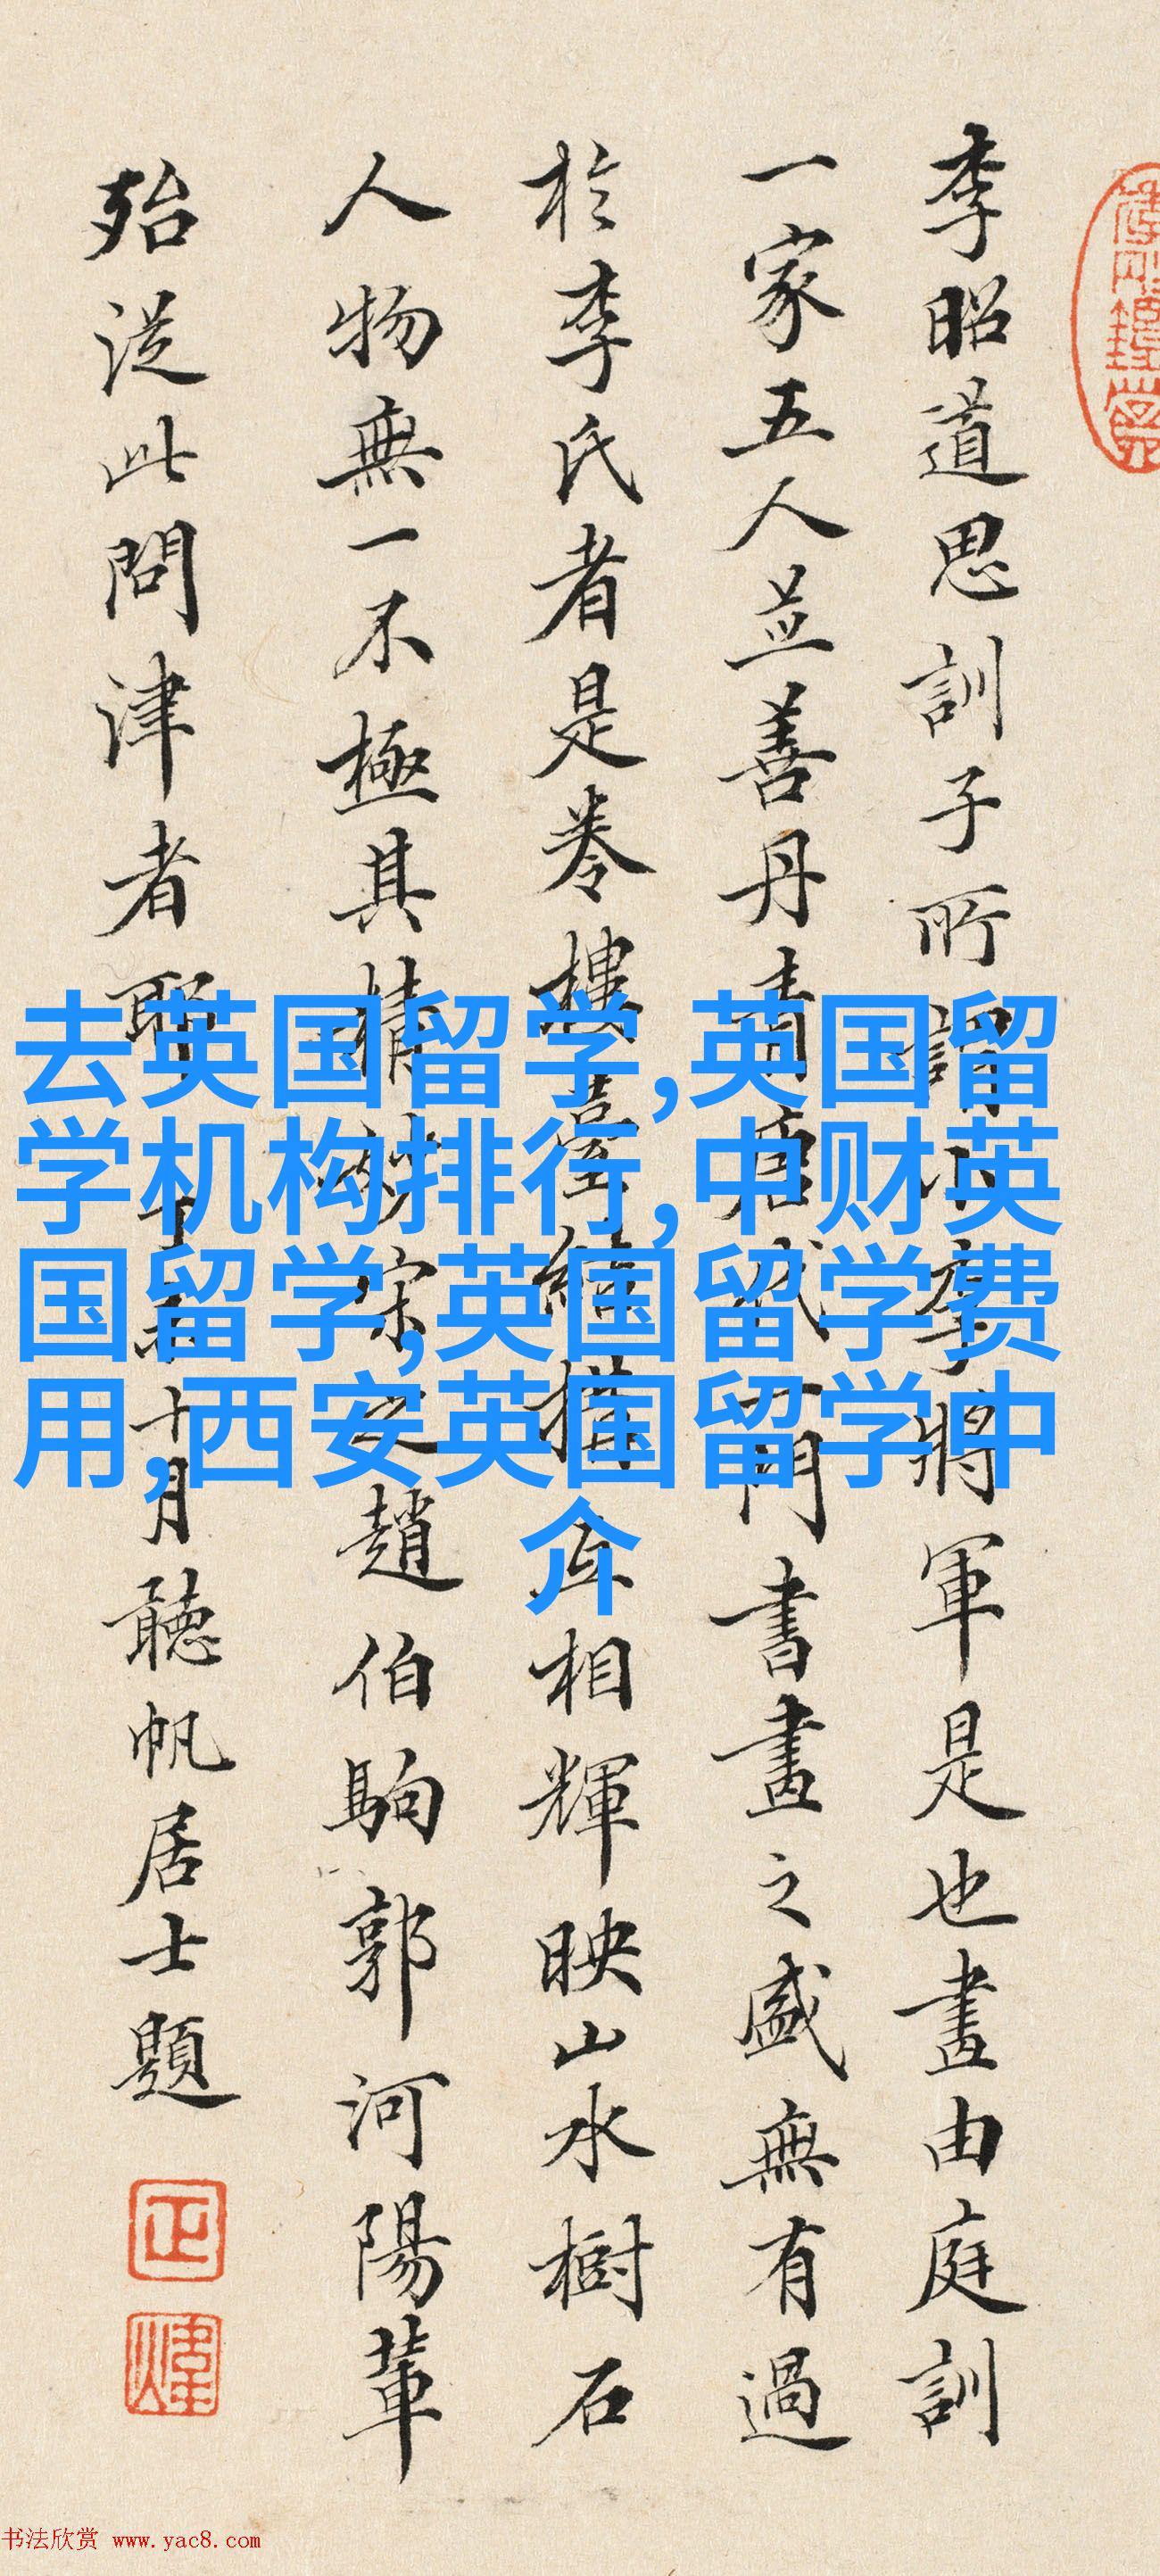 李昭道思訓子所謂小李將軍是也畫由庭訓
一家五人並善丹青唐代一門書畫之盛無有過
於李氏者是卷樓臺結構互相輝映山水樹石
人物無一不極其精妙宋之趙伯駒郭河陽輩
殆從此問津者耶
十月聽帆居士題
去英国留学,英国留
学机构排行,中财英
国留学,英国留学费
用,西安英国留学中
介
书法欣赏 www.yac8.com